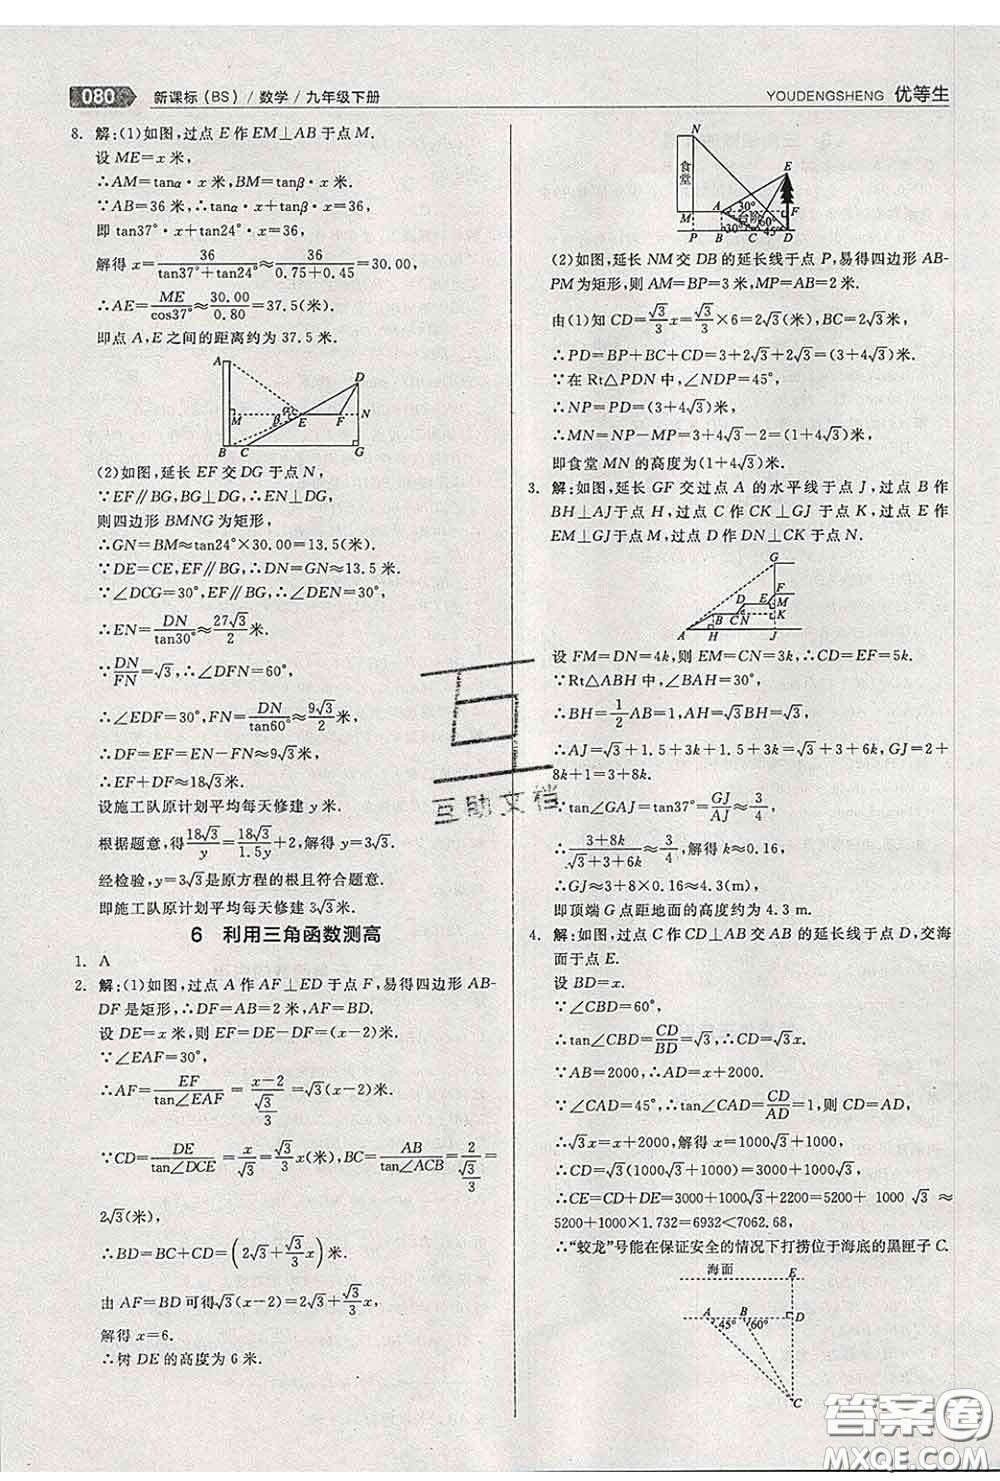 080 新课标(BS)/数学/九年级下册
YOUDENGSHENG 优等生
8. 解:(1)如图,过点E作EM⊥AB于点M.
设ME=x米,
∴AM=tanα·x米,BM=tanβ·x米,
∵AB=36米,∴tanα·x+tanβ·x=36,
即tan37°·x+tan24°·x=36,
解得x=36/(tan37°+tan24°)≈36/(0.75+0.45)=30.00,
∴AE=ME/cos37°≈30.00/0.80=37.5(米).
即点A,E之间的距离约为37.5米.
A D M α β E F N B C G
(2)如图,延长EF交DG于点N,
∵EF∥BG,BG⊥DG,∴EN⊥DG,
则四边形BMNG为矩形,
∴GN=BM≈tan24°×30.00=13.5(米).
∵DE=CE,EF∥BG,∴DN=GN≈13.5米.
∵∠DCG=30°,EF∥BG,∴∠DEN=30°,
∴EN=DN/tan30°≈27√3/2米.
∵DN/FN=√3,∴∠DFN=60°,
∴∠EDF=30°,FN=DN/tan60°≈9√3/2米,
∴DF=EF=EN-FN≈9√3米,
∴EF+DF≈18√3米.
设施工队原计划平均每天修建y米.
根据题意,得18√3/y=18√3/1.5y+2,解得y=3√3.
经检验,y=3√3是原方程的根且符合题意.
即施工队原计划平均每天修建3√3米.
6 利用三角函数测高
1. A
2. 解:(1)如图,过点A作AF⊥ED于点F,易得四边形AB-
DF是矩形,∴DF=AB=2米,AF=BD.
设DE=x米,则EF=DE-DF=(x-2)米.
∵∠EAF=30°,
∴AF=EF/tan∠EAF=(x-2)/(√3/3)=√3(x-2)米.
∵CD=DE/tan∠DCE=x/√3=√3/3x(米),BC=AB/tan∠ACB=2/(√3/3)=
2√3(米),
∴BD=BC+CD=(2√3+√3/3x)米.
由AF=BD可得√3(x-2)=2√3+√3/3x,
解得x=6.
∴树DE的高度为6米.
N 食堂 E A 30° F M 台阶 60° 30° 45° P B C D
(2)如图,延长NM交DB的延长线于点P,易得四边形AB-
PM为矩形,则AM=BP=3米,MP=AB=2米.
由(1)知CD=√3/3x=√3/3×6=2√3(米),BC=2√3米,
∴PD=BP+BC+CD=3+2√3+2√3=(3+4√3)米.
∵在Rt△PDN中,∠NDP=45°,
∴NP=PD=(3+4√3)米,
∴MN=NP-MP=3+4√3-2=(1+4√3)米.
即食堂MN的高度为(1+4√3)米.
3. 解:如图,延长GF交过点A的水平线于点J,过点B作
BH⊥AJ于点H,过点C作CK⊥GJ于点K,过点E作
EM⊥GJ于点M,过点D作DN⊥CK于点N.
G F D E M B C N K A H J
设FM=DN=4k,则EM=CN=3k,∴CD=EF=5k.
∵Rt△ABH中,∠BAH=30°,
∴BH=1/2AB=1,AH=√3BH=√3,
∴AJ=√3+1.5+3k+1.5+3k=√3+3+6k,GJ=2+
8k+1=3+8k.
∵tan∠GAJ=tan37°=GJ/AJ≈3/4,
∴(3+8k)/(√3+3+6k)≈3/4,解得k≈0.16,
∴GJ≈3+8×0.16≈4.3(m).
即顶端G点距地面的高度约为4.3 m.
4. 解:如图,过点C作CD⊥AB交AB的延长线于点D,交海
面于点E.
设BD=x.
∵∠CBD=60°,
∴tan∠CBD=tan60°=CD/BD=√3,∴CD=√3x.
∵AB=2000,∴AD=x+2000.
∵∠CAD=45°,∴tan∠CAD=CD/AD=1,则CD=AD,
∴√3x=x+2000,解得x=1000√3+1000,
∴CD=√3(1000√3+1000)=3000+1000√3,
∴CE=CD+DE=3000+1000√3+2200=5200+1000√3≈
5200+1000×1.732=6932<7062.68,
∴“蛟龙”号能在保证安全的情况下打捞位于海底的黑匣子C.
海面 E A B D 45° 60° C
互助文档
答案圈
MXQE.COM